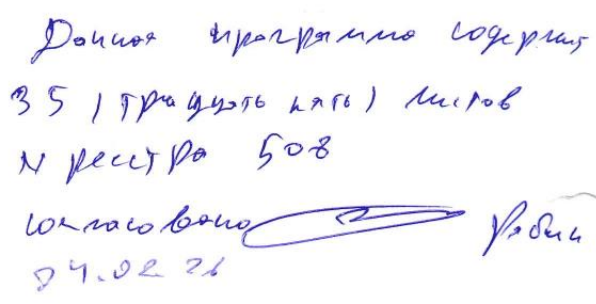 Данная программа содержит
35 (тридцать пять) листов
N реестра 508
согласовано Рябин
04.02.26